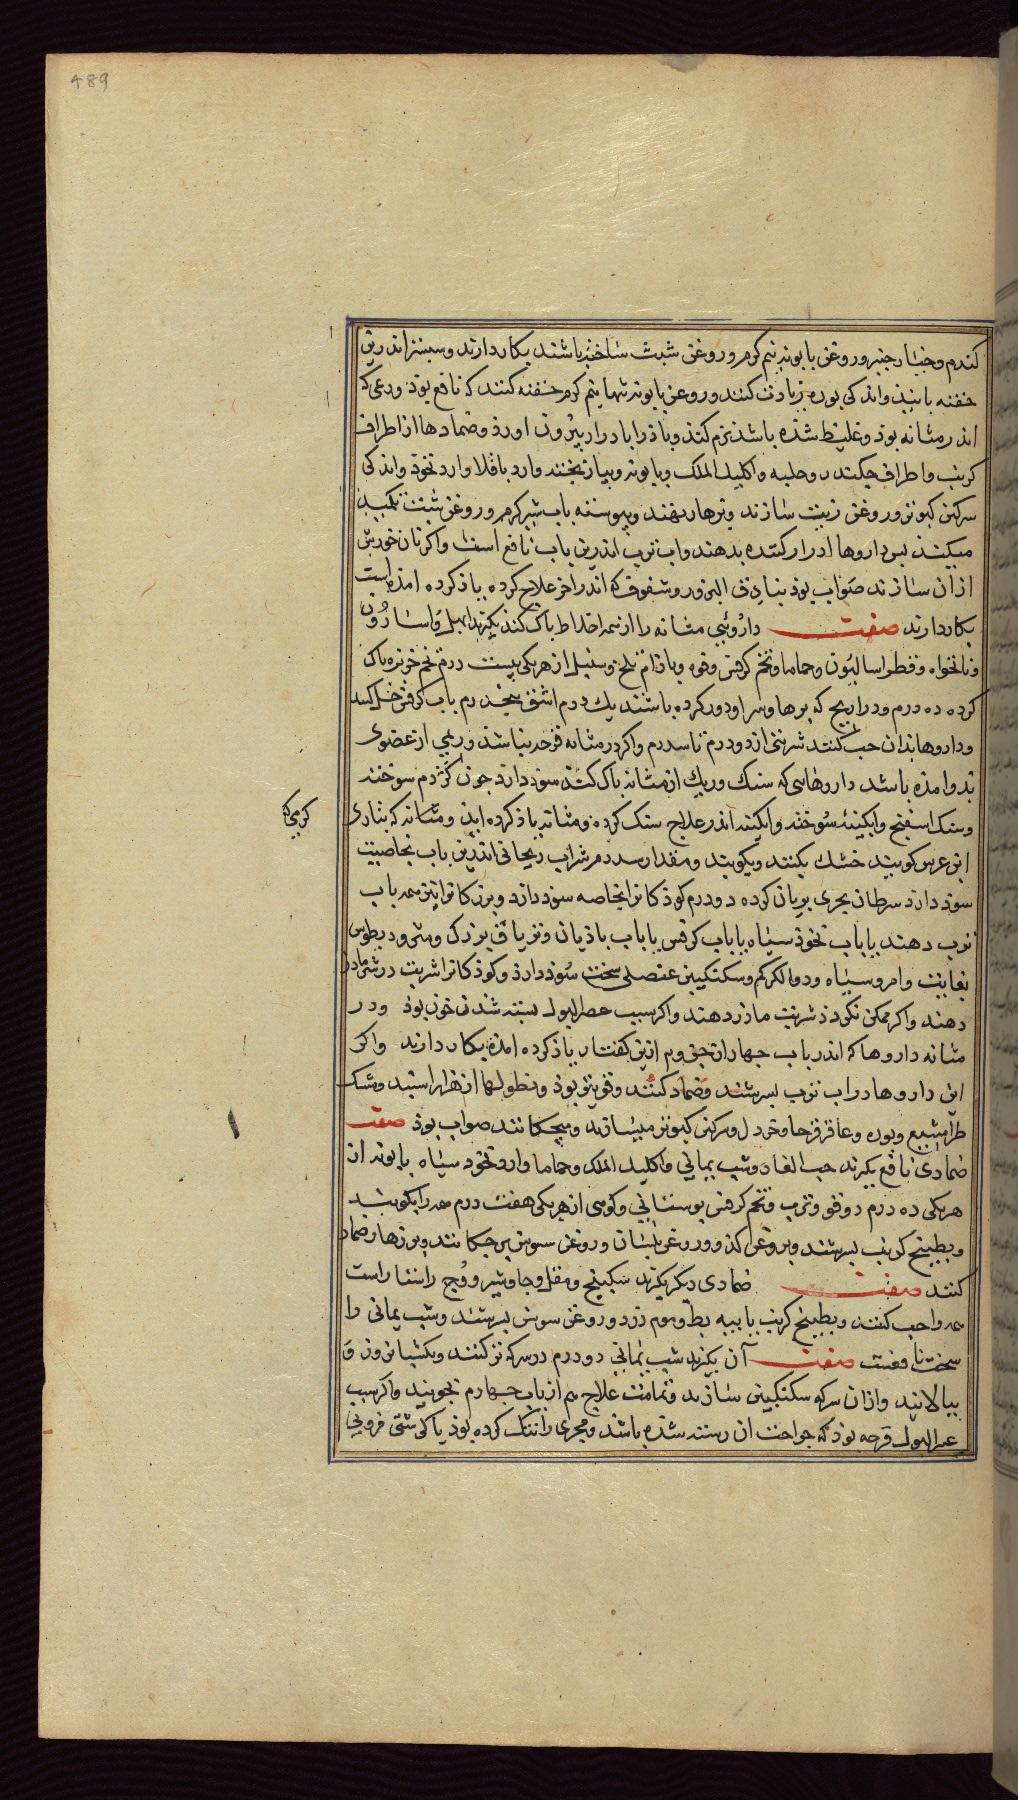 489
کندم وخیار چنبر وروغن بابونه نیم کرم وروغن شبث ساخته باشند بکار دارند وسپستر اندرین
حقنه بابیذن واندکی بوره زیادت کنند وروغن بابونه تنها نیم کرم حقنه کنند که نافع بوذ ورمی که
اندر مثانه بوذ وغلیظ شذه باشذ نرم کنذ وباذرا بادرار بیرون اورذ وضمادها از اطراف
کرنب واطراف چکندر وحلبه واکلیل الملک وبابونه وپیاز پخته وارد باقلا وارد نخوذ واندکی
سرکین کبوتر وروغن زیت سازند وبرهار نهند وپیوسته باب شیر کرم وروغن شبت تکمید
میکنند پس داروها ادرار کننده بدهند واب ترب اندرین باب نافع است واکر نان خورش
ازان سازند صواب بوذ بنادق البزور وسفوف که اندر اخر علاج کرده یاذ کرده امده است
بکار دارند صفت داروئی مثانه را از همه اخلاط پاک کند بکیرند ابهل واسارون
ونانخواه وفطراسالیون وحماما وتخم کرفس وفوه وباذام تلخ وسنبل از هر یکی بیست درم تخم خربزه پاک
کرده ده درم وذراریح که پرها وسر او دور کرده باشند یک درم اشق پنج درم باب کرفس حل کنند
وداروها بذان حب کنند شربتی از دو درم تا سه درم واکر در مثانه قرحه نباشذ وریمی از عضوی
بدو امده باشد داروهاسی که سنک وریک از مثانه پاک کند سوذ دارذ چون کژدم سوخته
وسنک اسفنج وابکینه سوخته وابکینه اندر علاج سنک کرده ومثانه یاذ کرده ایذ ومثانه که بتازی
کرمی که
ابن عرس کویند خشک بکنند وبکوبند ومقدار سه درم شراب ریحانی اندرین باب بخاصیت
سوذ دارد سرطان بحری بریان کرده دو درم کوذکانرا بخاصه سوذ دارد وبزرکانرا نیز همه باب
ترب دهند یا باب نخوذ سیاه یا باب کرفس یا باب باذیان وتریاق بزرک ومثرودیطوس
بغایت وامروسیاه ودواء الکرکم وسکنکبین عنصلی سخت سوذ دارذ وکوذکانرا شربت در شیر مادر
دهند واکر ممکن نکردذ شربت ماذر دهند واکر سبب حصر البول بسته شدن خون بوذ ودر
مثانه داروها که اندر باب چهارم از جزو دوم ازین کفتار یاذ کرده امده بکار دارند واکر
این داروها در اب ترب بسرشند وضماد کنند وقویتر بوذ ونطولها از هزار اسپند ومشک
طرامشیع وبوره وعاقرقرحا وخردل وسرکین کبوتر میسازند ومیچکانند صواب بوذ صفت
ضمادی نافع بکیرند حب الغار وشب یمانی واکلیل الملک وحماما وارد نخود سیاه بابونه از
هر یکی ده درم دوقو وترب وتخم کرفس بوستانی وکوهی از هر یکی هفت درم همه را بکوبند
وبطبیخ کرنب بسرشند وبروغن کذو وروغن بلسان وروغن سوسن برچکانند وبر زهار ضماد
کنند صفت ضمادی دیکر بکیرند سکبینج ومقل وجاوشیر ووج راستا راست
همه را حب کنند وبطبیخ کرنب با پیه بط وموم زرد وروغن سوسن بسرشند وشب یمانی را
سخت نافعست صفت آن بکیرند شب یمانی دو درم در سرکه تر کنند ویکشبانروز و
بپالایند وازان سرکه سکنکبین سازند وتمامت علاج هم از باب چهارم بجویند واکر سبب
عسر البول قرحه بوذ که جراحت ان رسته شذه باشد ومجری را تنک کرده بوذ یا کوشتی فزونی